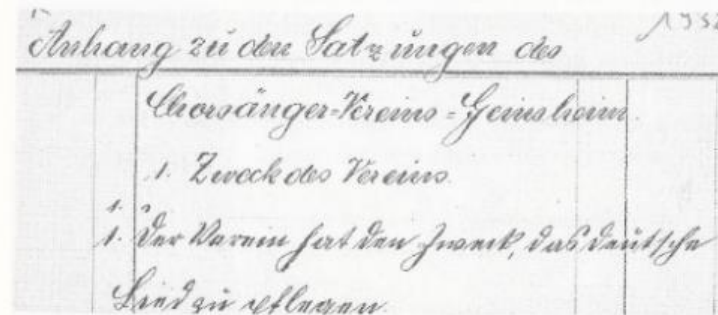 193
Anhang zu den Satzungen des
Chorsänger-Vereins-Geinsheim.
1. Zweck des Vereins.
1.
1. Der Verein hat den Zweck, das deutsche
Lied zu pflegen.